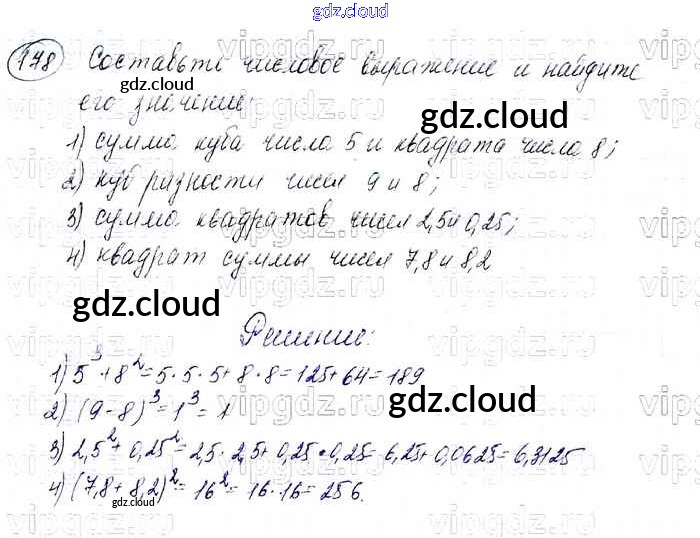 gdz.cloud
178 Составьте числовое выражение и найдите
gdz.cloud
его значение:
gdz.cloud
1) сумма куба числа 5 и квадрата числа 8;
2) куб разности чисел 9 и 8;
3) сумма квадратов чисел 2,5 и 0,25;
4) квадрат суммы чисел 7,8 и 8,2
gdz.cloud
Решение:
gdz.cloud
1) 5³+8²=5·5·5+8·8=125+64=189
gdz.cloud
2) (9-8)³=1³=1
3) 2,5²+0,25²=2,5·2,5+0,25·0,25=6,25+0,0625=6,3125
4) (7,8+8,2)²=16²=16·16=256.
gdz.cloud